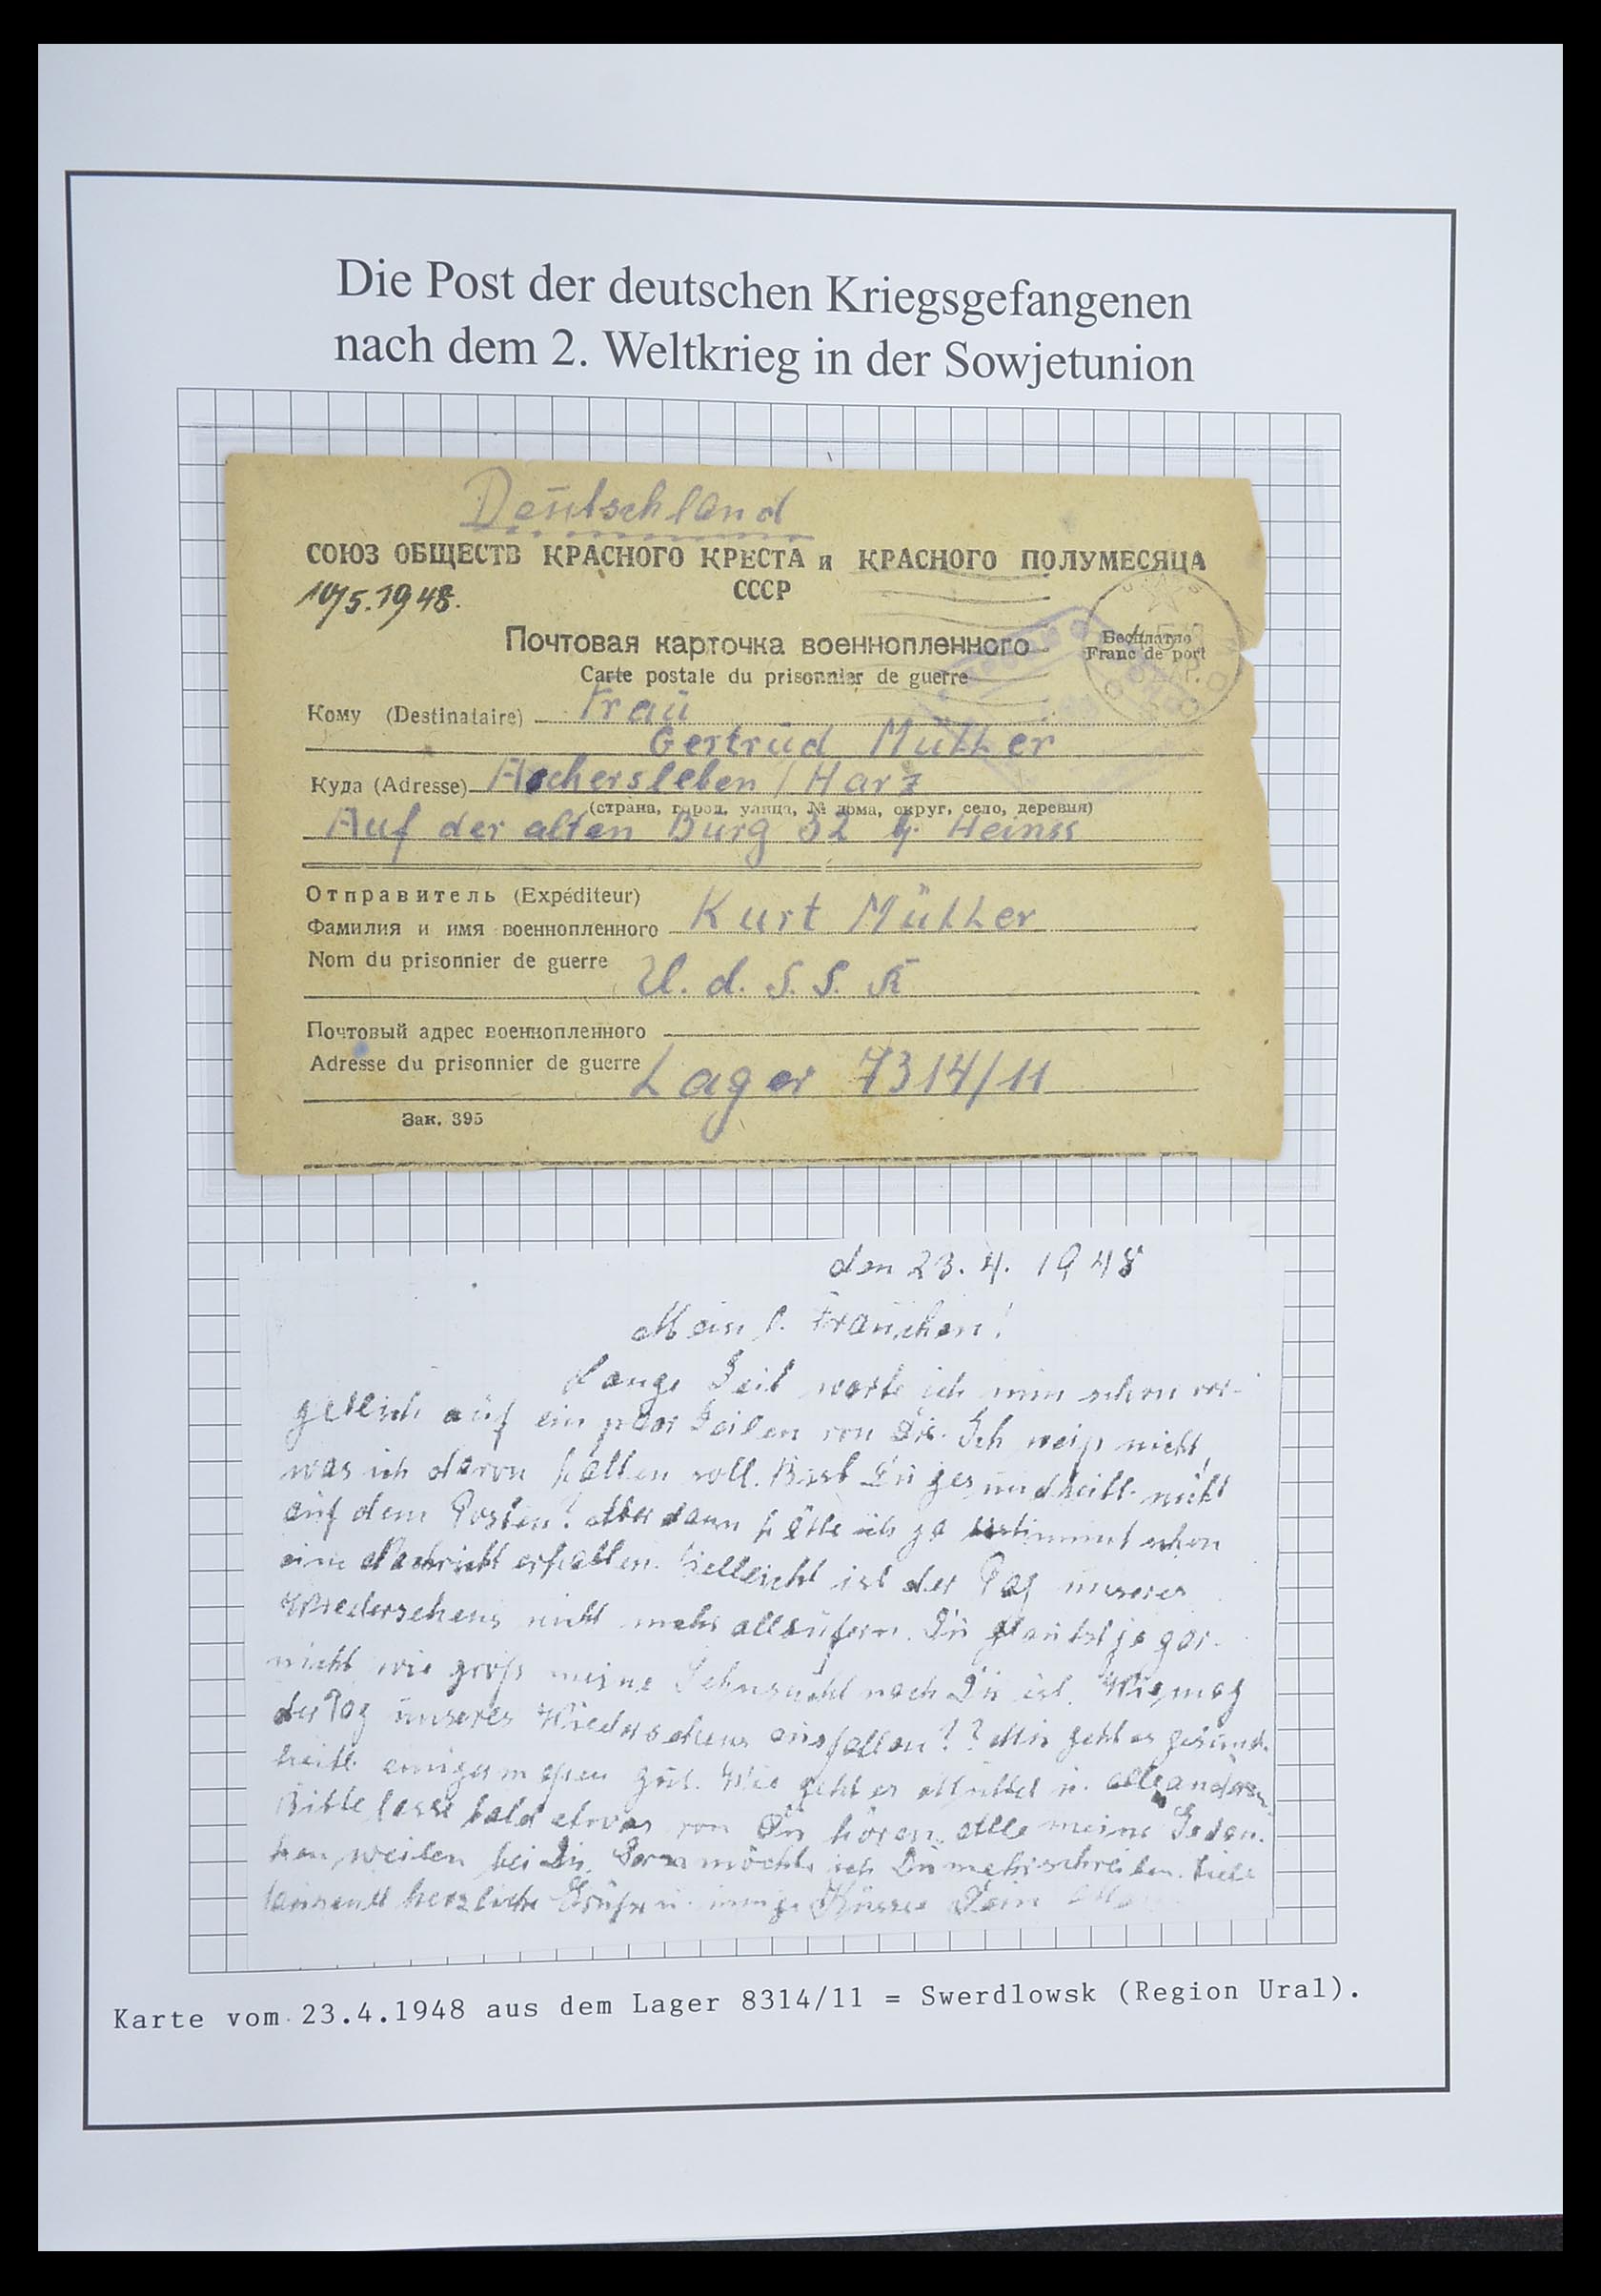 Die Post der deutschen Kriegsgefangenen
nach dem 2. Weltkrieg in der Sowjetunion
Deutschland
СОЮЗ ОБЩЕСТВ КРАСНОГО КРЕСТА и КРАСНОГО ПОЛУМЕСЯЦА
СССР
10/5.1948.
Почтовая карточка военнопленного
Бесплатно
Carte postale du prisonnier de guerre
Franc de port
Кому (Destinataire) Frau
Gertrud Müller
Куда (Adresse) Aschersleben / Harz
(страна, город, улица, № дома, округ, село, деревня)
Auf der alten Burg 32 b. Heinss
Отправитель (Expéditeur)
Фамилия и имя военнопленного Kurt Müller
Nom du prisonnier de guerre
U. d. S. S. R
Почтовый адрес военнопленного
Adresse du prisonnier de guerre Lager 7314/11
Зак. 395
den 23. 4. 1948
Mein l. Frauchen!
Lange Zeit warte ich nun schon ver-
geblich auf ein paar Zeilen von Dir. Ich weiß nicht,
was ich davon halten soll. Bist Du gesundheitl. nicht
auf dem Posten? Aber dann hätte ich ja bestimmt schon
eine Nachricht erhalten. Vielleicht ist der Tag unseres
Wiedersehens nicht mehr allzufern. Du glaubst ja gar-
nicht wie groß meine Sehnsucht nach Dir ist. Wie mag
der Tag unseres Wiedersehens ausfallen?? Mir geht es gesund-
heitl. einigermaßen gut. Wie geht es u. alle anderen
Bitte lasse bald etwas von Dir hören. Alle meine Gedan-
ken weilen bei Dir. Gern möchte ich Dir mehr schreiben. Viele
tausend herzliche Grüße u. innige Küsse Dein
Karte vom 23.4.1948 aus dem Lager 8314/11 = Swerdlowsk (Region Ural).